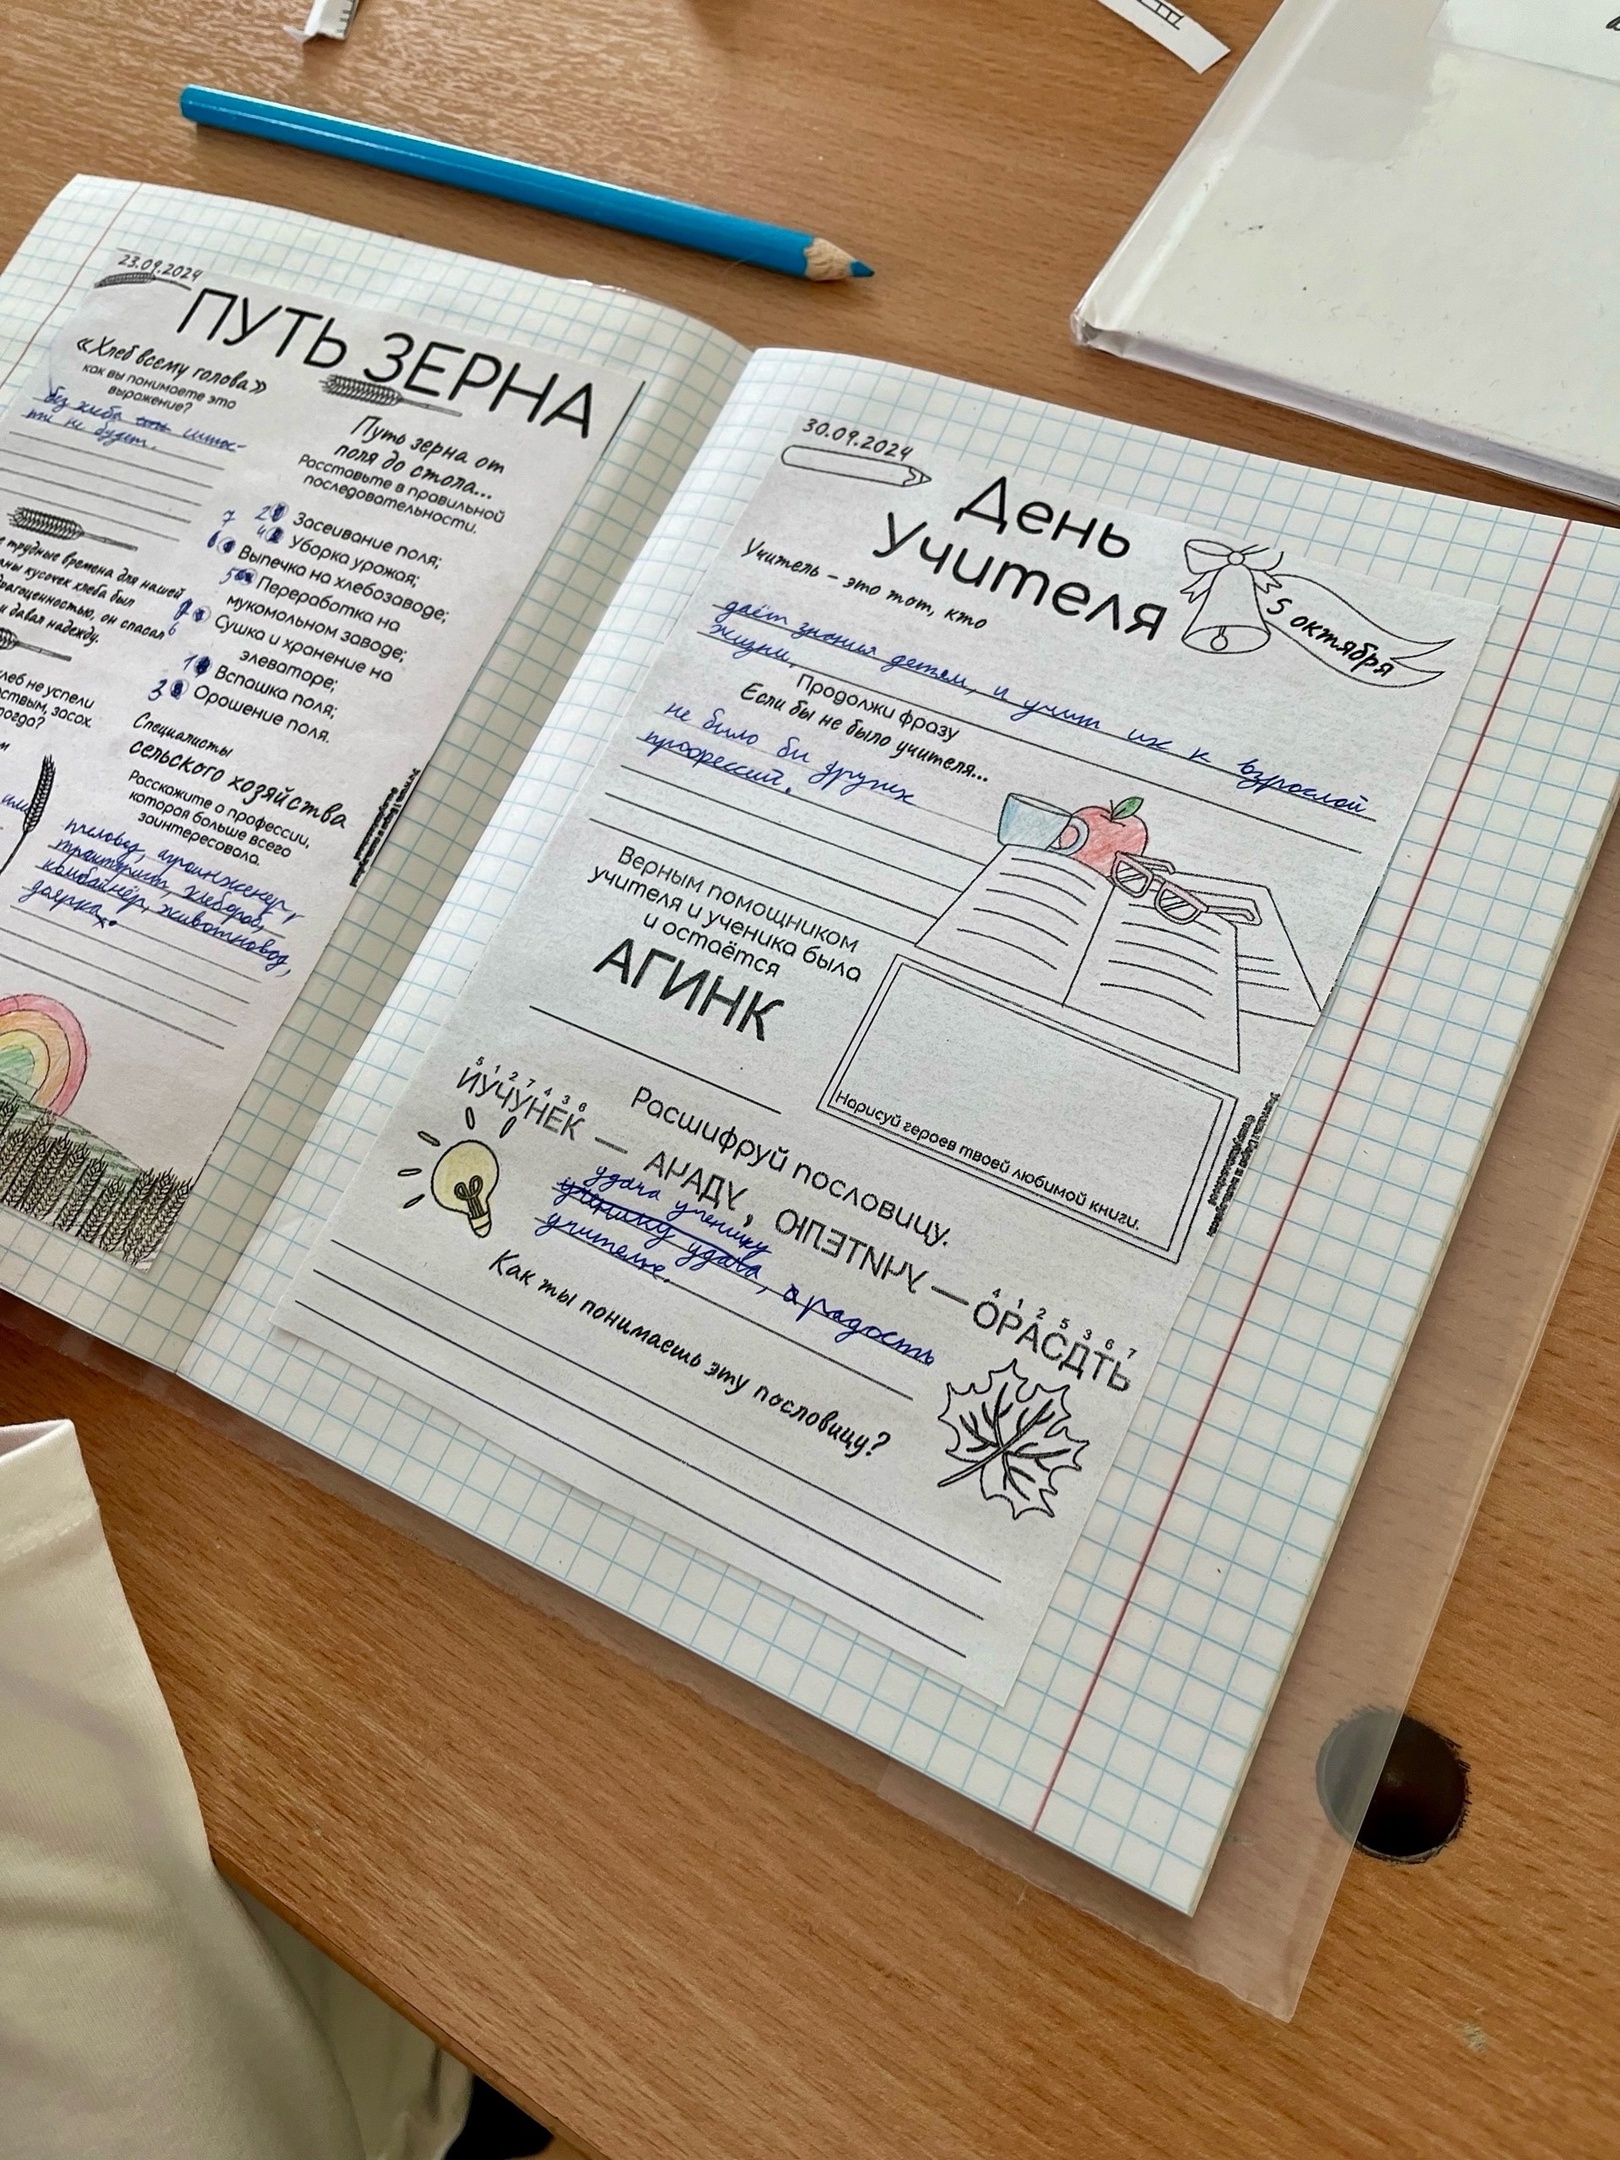 23.09.2024
ПУТЬ ЗЕРНА
«Хлеб всему голова»
как вы понимаете это
выражение?
без хлеба
ти не будет.
е трудные времена для нашей
аны кусочек хлеба был
драгоценностью, он спасал
и давал надежду.
леб не успели
рствым, засох.
тогда?
Путь зерна от
поля до стола...
Расставьте в правильной
последовательности.
2 Засеивание поля;
4 Уборка урожая;
7 6 Выпечка на хлебозаводе;
5 Переработка на
мукомольном заводе;
6 Сушка и хранение на
элеваторе;
1 Вспашка поля;
3 Орошение поля.
Специалисты
сельского хозяйства
Расскажите о профессии,
которая больше всего
заинтересовала.
пчеловод, агроинженер,
тракторист, хлебороб,
комбайнёр, животновод,
доярка.
30.09.2024
День
Учителя
5 октября
Учитель – это тот, кто
даёт знания детям, и учит их к взрослой
жизни.
Продолжи фразу
Если бы не было учителя...
не было бы других
профессий.
Верным помощником
учителя и ученика была
и остаётся
АГИНК
Нарисуй героев твоей любимой книги.
Расшифруй пословицу.
5 1 2 7 4 3 6
ИУЧУНЕК — АЧАДУ, ЮПЭТИЧУ — ОРАСДТЬ
4 1 2 5 3 6 7
удача ученику
ученику удача, а радость
учителю.
Как ты понимаешь эту пословицу?